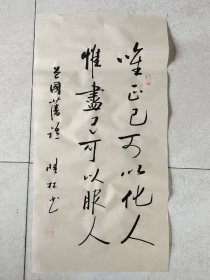 唯正己可以化人
惟盡己可以服人
曾國藩語 曉林書